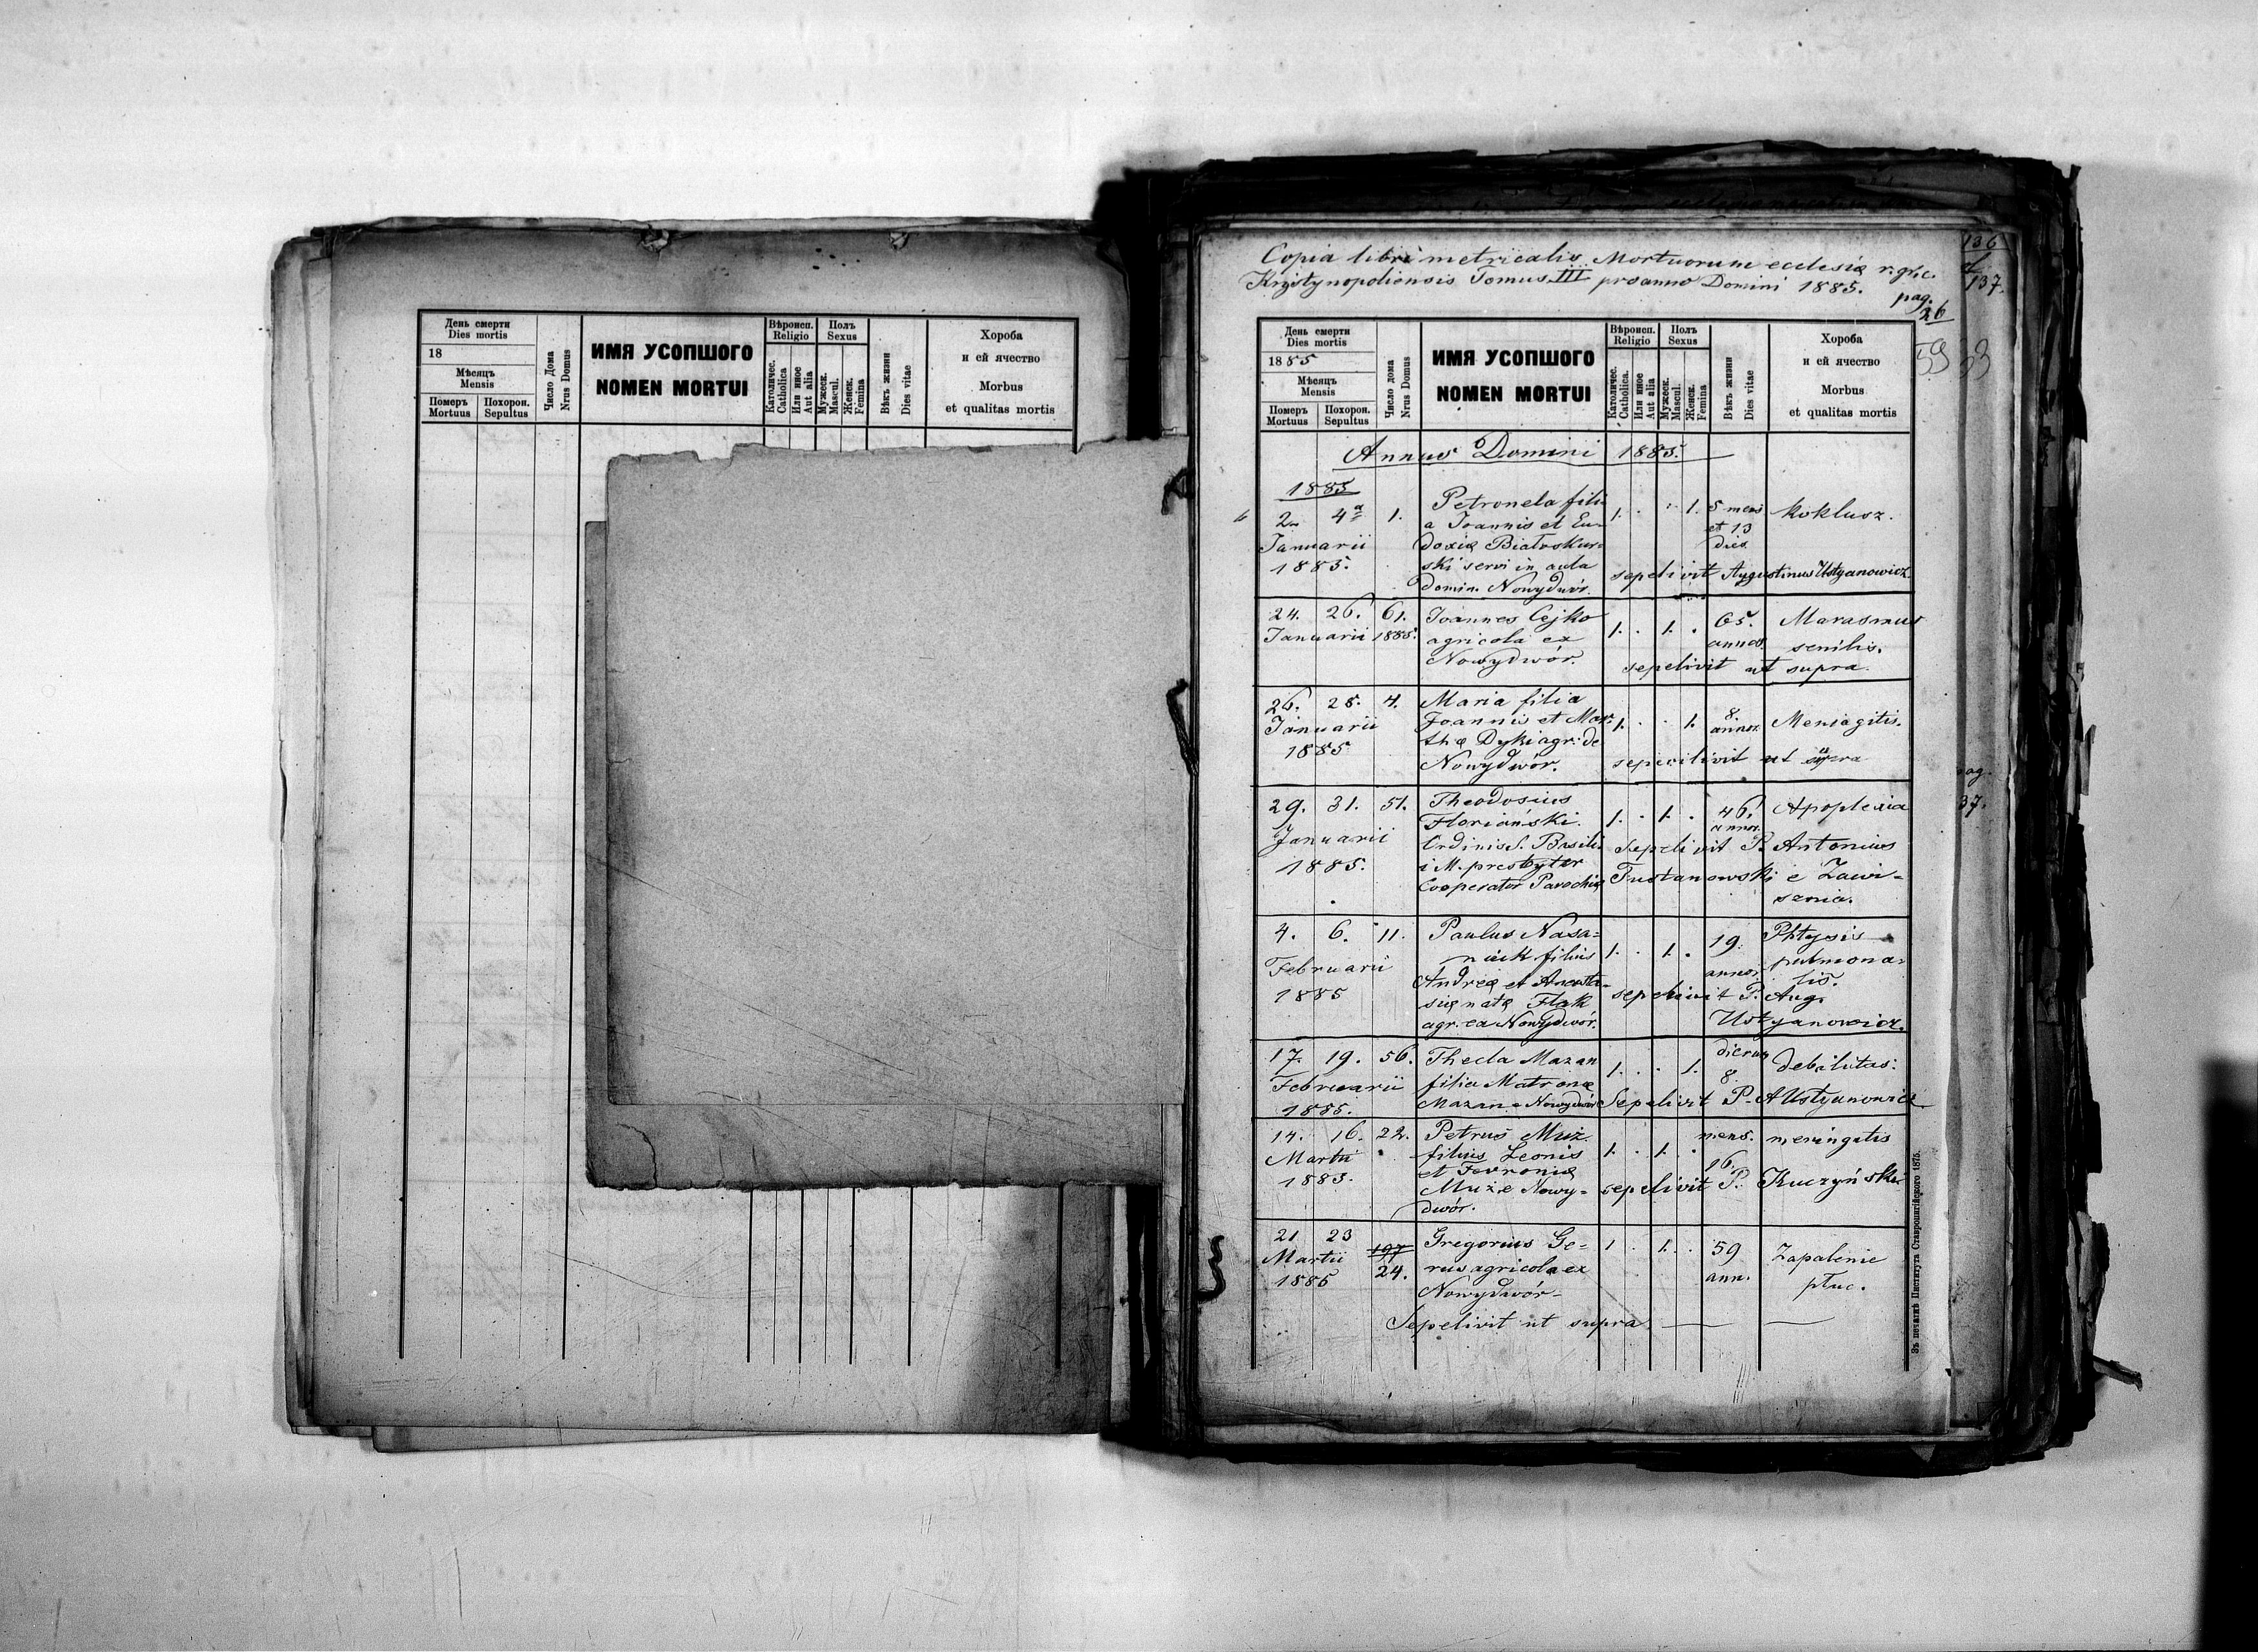 День смерти
Dies mortis
18
Мѣсяцъ
Mensis
Померъ
Mortuus
Похорон.
Sepultus
Число Дома
Nrus Domus
ИМЯ УСОПШОГО
NOMEN MORTUI
Вѣроисп.
Religio
Католичес.
Catholica
Или иное
Aut alia
Полъ
Sexus
Мужеск.
Mascul.
Женск.
Femina
Вѣкъ жизни
Dies vitae
Хороба
и ей ячество
Morbus
et qualitas mortis
Copia libri metricalis Mortuorum ecclesiæ r. gr. c.
Krystynopoliensis Tomus III pro anno Domini 1885.
pag.
26
136
137.
59 33
День смерти
Dies mortis
1885
Мѣсяцъ
Mensis
Померъ
Mortuus
Похорон.
Sepultus
Число дома
Nrus Domus
ИМЯ УСОПШОГО
NOMEN MORTUI
Вѣроисп.
Religio
Католичес.
Catholica.
Или иное
Aut alia
Полъ
Sexus
Мужеск.
Mascul.
Женск.
Femina
Вѣкъ жизни
Dies vitae
Хороба
и ей ячество
Morbus
et qualitas mortis
Annus Domini 1885.
1885
2 4ta 1.
Januarii
1885.
Petronela fili-
a Joannis et Eu-
doxiæ Białoskur-
ski servi in aula
domin. Nowydwór.
1. . . 1.
5 mens
et 13
dies
Koklusz.
sepelivit Augustinus Ustyanowicz.
24. 26. 61.
Januarii 1885.
Joannes Cejko
agricola ex
Nowydwór.
1. . 1. .
65.
annos
Marasmus
senilis.
sepelivit ut supra.
26. 28. 4.
Januarii
1885
Maria filia
Joannis et Mar-
thæ Dyki agr. de
Nowydwór.
1. . . 1.
8.
annor.
Meniagitis.
sepecilivit ut supra
29. 31. 51.
Januarii
1885.
Theodosius
Floriański.
Ordinis S. Basili-
i M. presbyter
Cooperator Parochiæ
1. . 1. .
46.
annor.
Apoplexia
Sepelivit P. Antonius
Tustanowski e Zawi-
sznia.
4. 6. 11.
Februarii
1885
Paulus Nasa-
niuk filius
Andreæ et Anasta-
siæ natæ Flak
agr. ex Nowydwór.
1. . 1. .
19.
annor.
Phtysis
pulmona-
lis.
sepelivit P. Aug.
Ustyanowicz.
17. 19. 56.
Februarii
1885.
Thecla Mazan
filia Matronæ
Mazan e Nowydwór
1. . . 1.
dierum
8.
debilitas.
Sepelivit P. A Ustyanowicz
14. 16. 22.
Martii
1885.
Petrus Muż
filius Leonis
et Fevroniæ
Muż e Nowy-
dwór.
1. . 1. .
mens.
16.
meningitis
sepelivit P. Kuczyński
21 23 197
Martii 24.
1885
Gregorius Ge-
rus agricola ex
Nowydwór-
1 . 1. .
59
ann.
Zapalenie
płuc.
Sepelivit ut supra.
Зъ печатнѣ Института Ставропигійского 1875.
ag.
37.